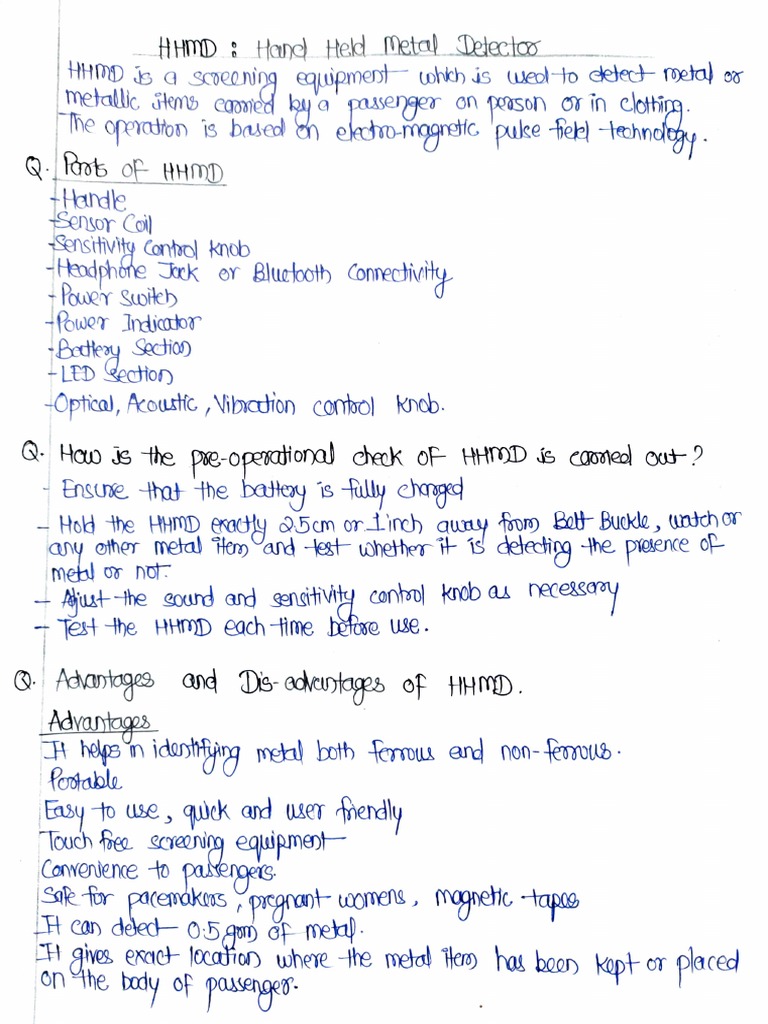 HHMD : Hand Held Metal Detector
HHMD is a screening equipment which is used to detect metal or
metallic items carried by a passenger on person or in clothing.
The operation is based on electro-magnetic pulse field technology.
Q. Parts of HHMD
-Handle
-Sensor Coil
-Sensitivity Control Knob
-Headphone Jack or Bluetooth Connectivity
-Power Switch
-Power Indicator
-Battery Section
-LED Section
-Optical, Acoustic, Vibration control knob.
Q. How is the pre-operational check of HHMD is carried out?
- Ensure that the battery is fully charged
- Hold the HHMD exactly 2.5cm or 1 inch away from Belt Buckle, watch or
any other metal item and test whether it is detecting the presence of
metal or not.
- Adjust the sound and sensitivity control knob as necessary
- Test the HHMD each time before use.
Q. Advantages and Dis-advantages of HHMD.
Advantages
It helps in identifying metal both ferrous and non-ferrous.
Portable
Easy to use, quick and user friendly
Touch free screening equipment
Convenience to passengers.
Safe for pacemakers, pregnant womens, magnetic tapes
It can detect 0.5 gm of metal.
It gives exact location where the metal item has been kept or placed
on the body of passenger.